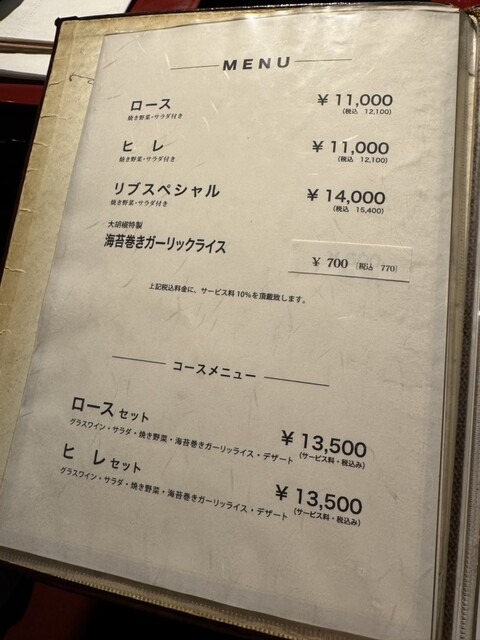 MENU
ロース ¥11,000
焼き野菜・サラダ付き (税込 12,100)
ヒレ ¥11,000
焼き野菜・サラダ付き (税込 12,100)
リブスペシャル ¥14,000
焼き野菜・サラダ付き (税込 15,400)
大胡椒特製
海苔巻きガーリックライス
¥700 (税込 770)
上記税込料金に、サービス料10%を頂戴致します。
コースメニュー
ロースセット ¥13,500
グラスワイン・サラダ・焼き野菜・海苔巻きガーリッライス・デザート (サービス料・税込み)
ヒレセット ¥13,500
グラスワイン・サラダ・焼き野菜・海苔巻きガーリッライス・デザート (サービス料・税込み)